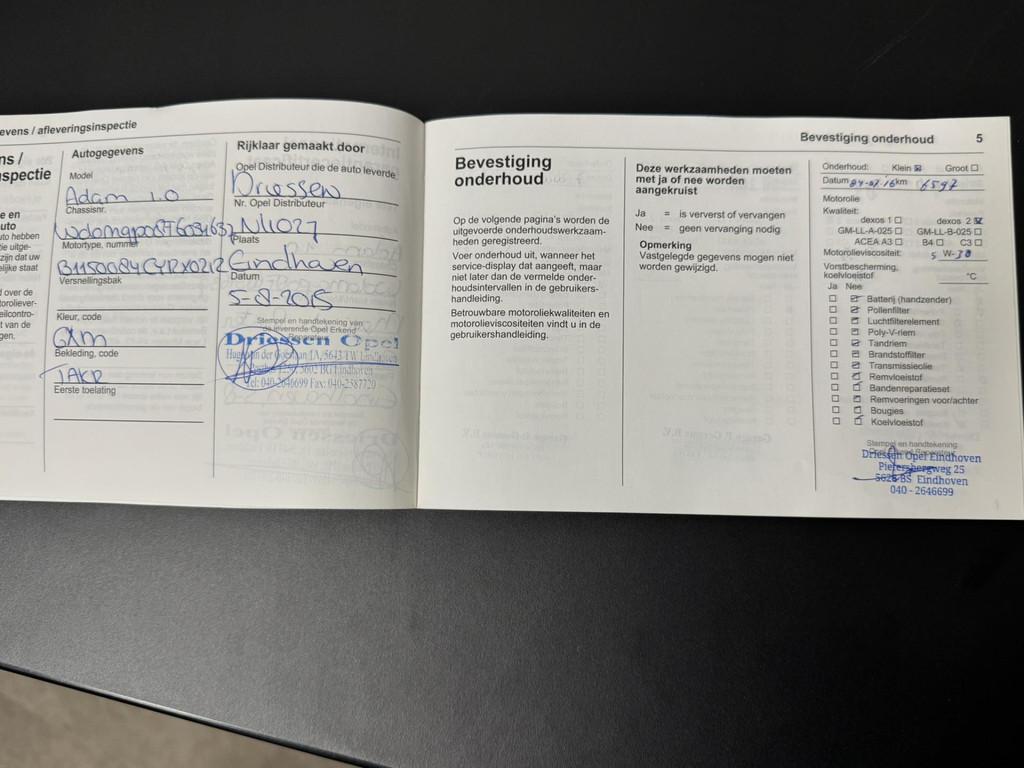 evens / afleveringsinspectie
ns /
spectie
e en
uto
uto hebben
ie uitge-
zijn dat uw
elijke staat
d over de
toroliever-
eilcontro-
t van de
gen.
Autogegevens
Model
Adam 1.0
Chassisnr.
Motortype, nummer
Versnellingsbak
Kleur, code
GXM
Bekleding, code
TAKR
Eerste toelating
Rijklaar gemaakt door
Opel Distributeur die de auto leverde
Driessen
Nr. Opel Distributeur
NL1027
Plaats
Eindhoven
Datum
5-8-2015
Stempel en handtekening van
de leverende Opel Erkend
Driessen Opel
Tel: 040-2646699 Fax: 040-2587720
Bevestiging onderhoud 5
Bevestiging
onderhoud
Op de volgende pagina's worden de
uitgevoerde onderhoudswerkzaam-
heden geregistreerd.
Voer onderhoud uit, wanneer het
service-display dat aangeeft, maar
niet later dan de vermelde onder-
houdsintervallen in de gebruikers-
handleiding.
Betrouwbare motoroliekwaliteiten en
motorolieviscositeiten vindt u in de
gebruikershandleiding.
Deze werkzaamheden moeten
met ja of nee worden
aangekruist
Ja = is ververst of vervangen
Nee = geen vervanging nodig
Opmerking
Vastgelegde gegevens mogen niet
worden gewijzigd.
Onderhoud: Klein ☒ Groot ☐
Datum 04-07-16 km 6597
Motorolie
Kwaliteit:
dexos 1 ☐ dexos 2 ☒
GM-LL-A-025 ☐ GM-LL-B-025 ☐
ACEA A3 ☐ B4 ☐ C3 ☐
Motorolieviscositeit: 5 W-30
Vorstbescherming,
koelvloeistof °C
Ja Nee
Batterij (handzender)
Pollenfilter
Luchtfilterelement
Poly-V-riem
Tandriem
Brandstoffilter
Transmissieolie
Remvloeistof
Bandenreparatieset
Remvoeringen voor/achter
Bougies
Koelvloeistof
Stempel en handtekening
Driessen Opel Eindhoven
Pietersbergweg 25
5628 BS Eindhoven
040 - 2646699